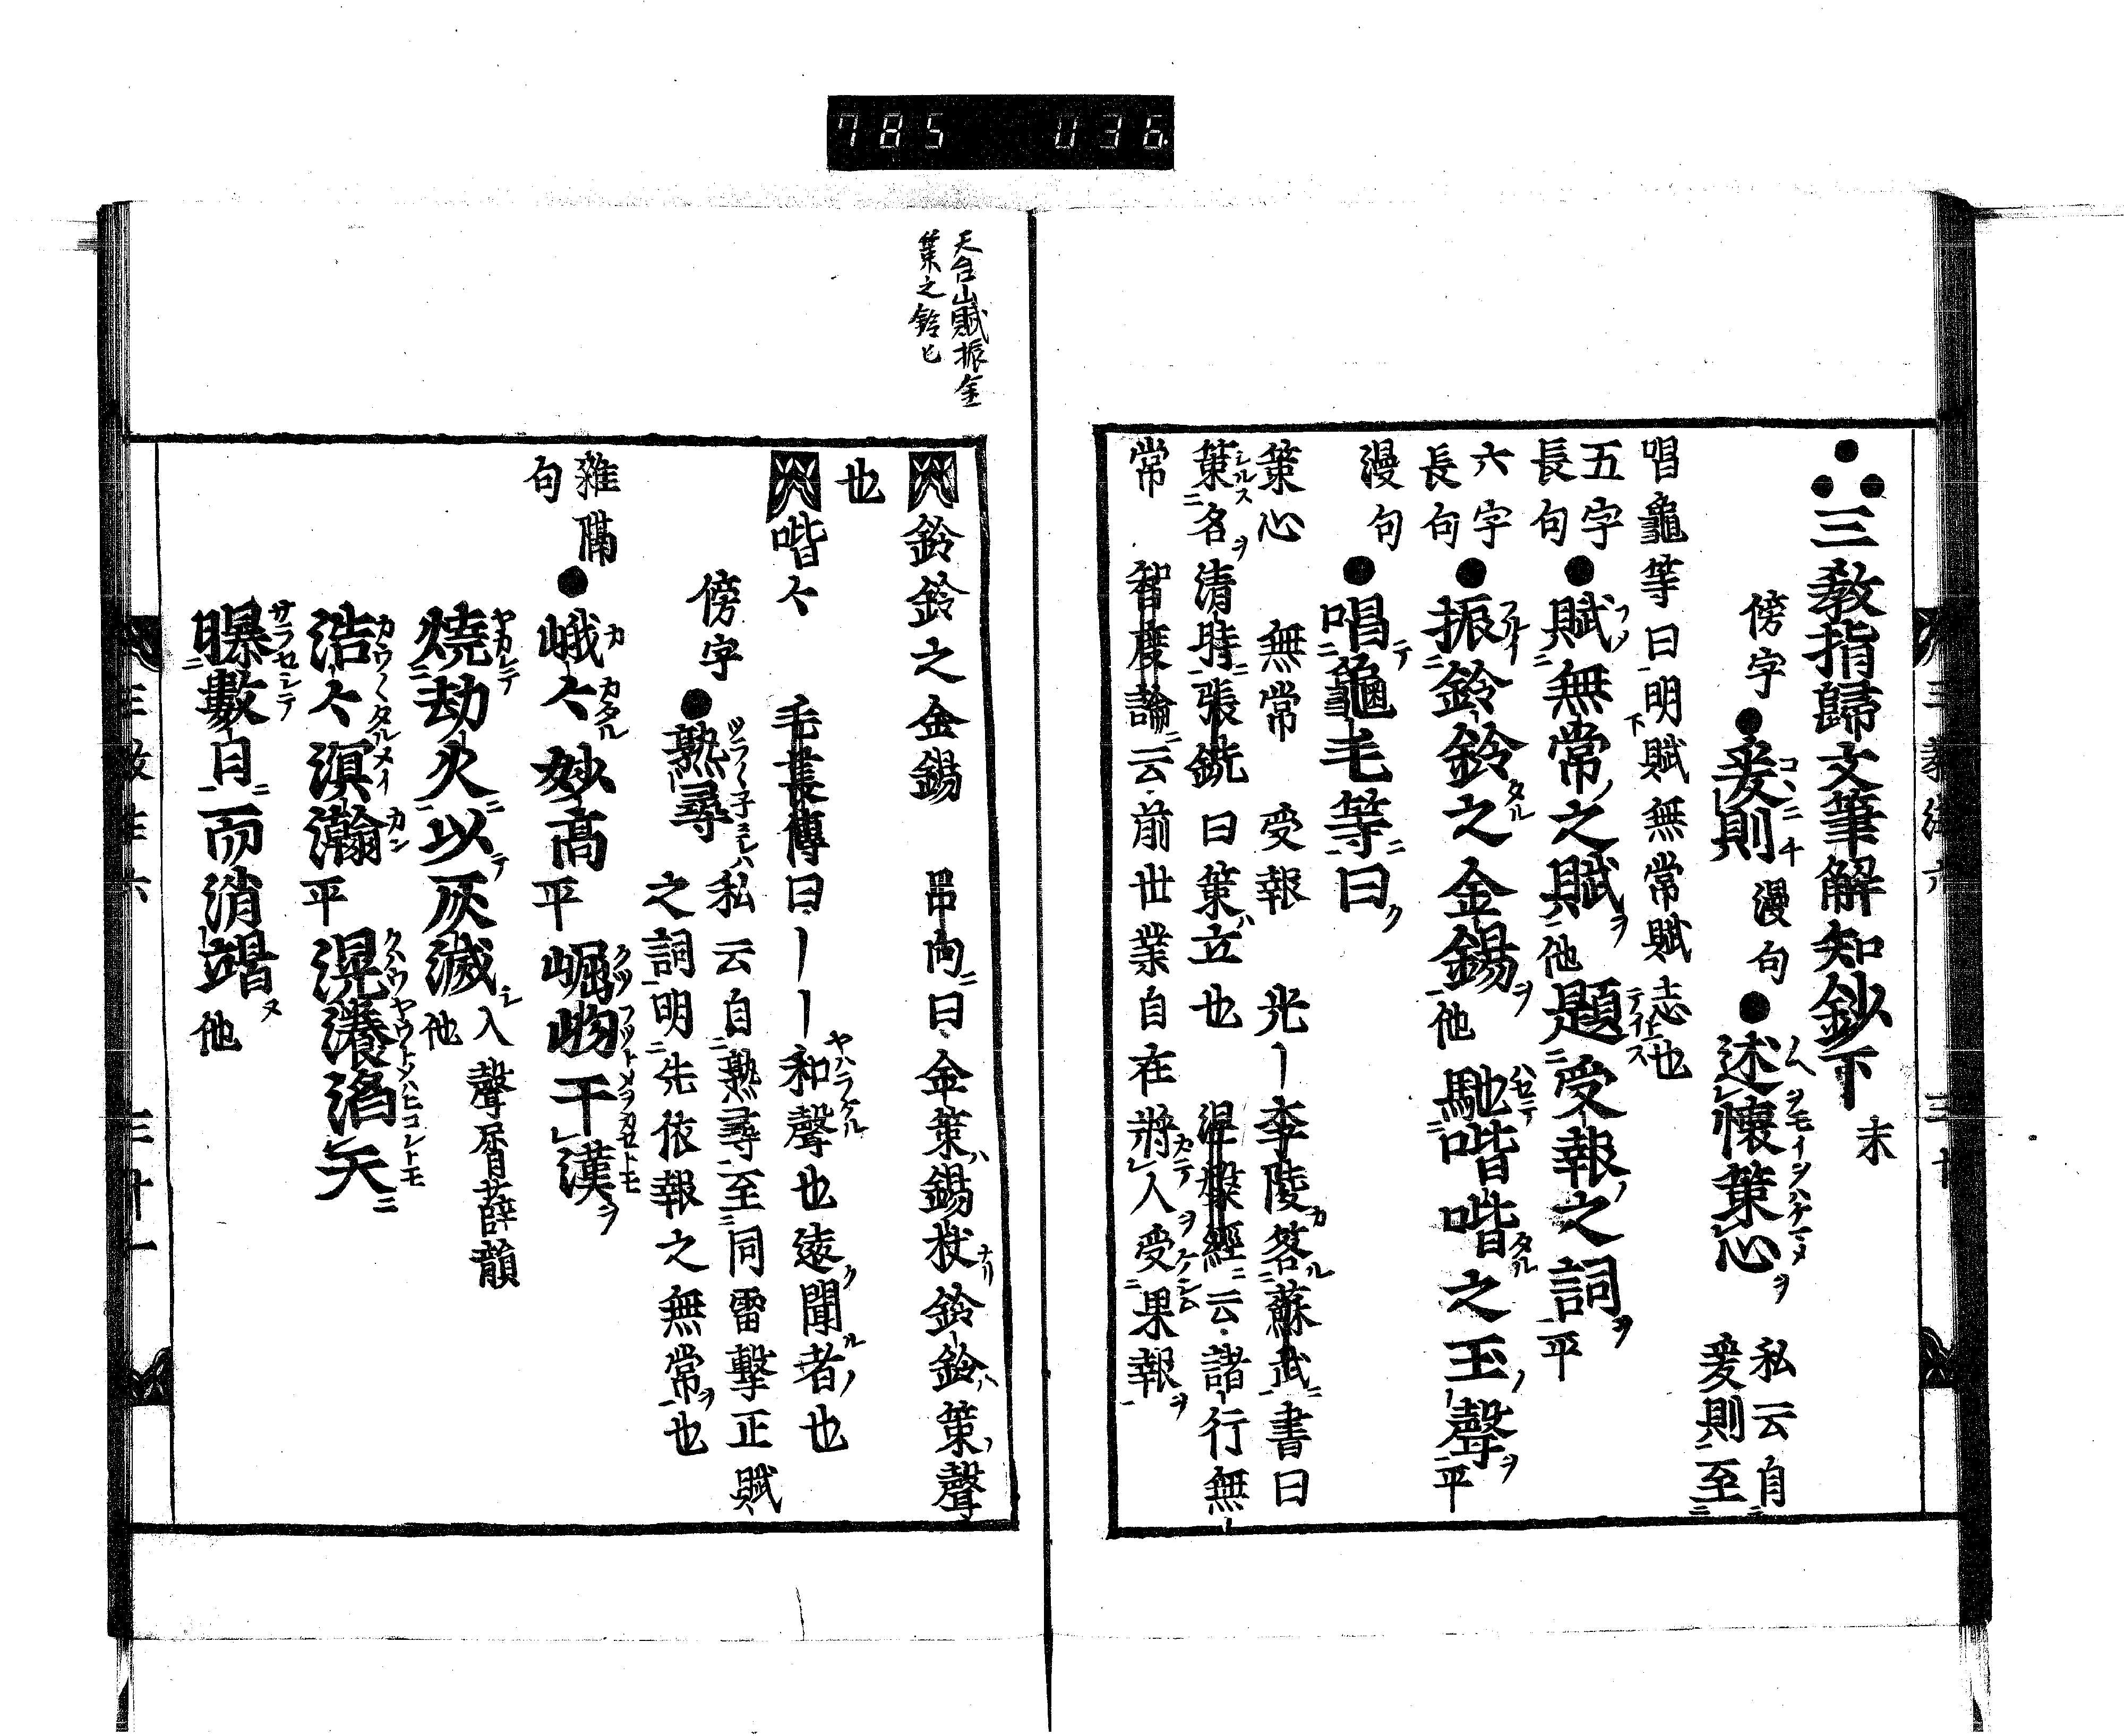 785 036
三教指歸文筆解知鈔下 末
傍字●爰則 漫句●述懷策心 私云自
爰則至
唱龜等曰明賦無常賦志也
五字
長句●賦無常之賦他題受報之詞平
六字
長句●振鈴鈴之金錫他馳喈喈之玉聲平
漫句●唱龜毛等曰
策心 無常 受報 光ー李陵答蘇武書曰
策名清時張銑曰策立也 涅槃經云諸行無
常 智度論云前世業自在將人受果報
天台山賦振金
策之鈴也
鈴鈴之金錫 呂向曰金策錫杖鈴鈴策聲
也
喈々 毛萇傳曰ーー和聲也遠聞者也
傍字●熟尋 私云自熟尋至同雷擊正賦
之詞明先依報之無常也
雜隔
句●峨々妙高平崛岉干漢
燒劫火以灰滅他入聲屑薛韻
浩々溟瀚平滉瀁滔天
曝數日而消竭他
三十一